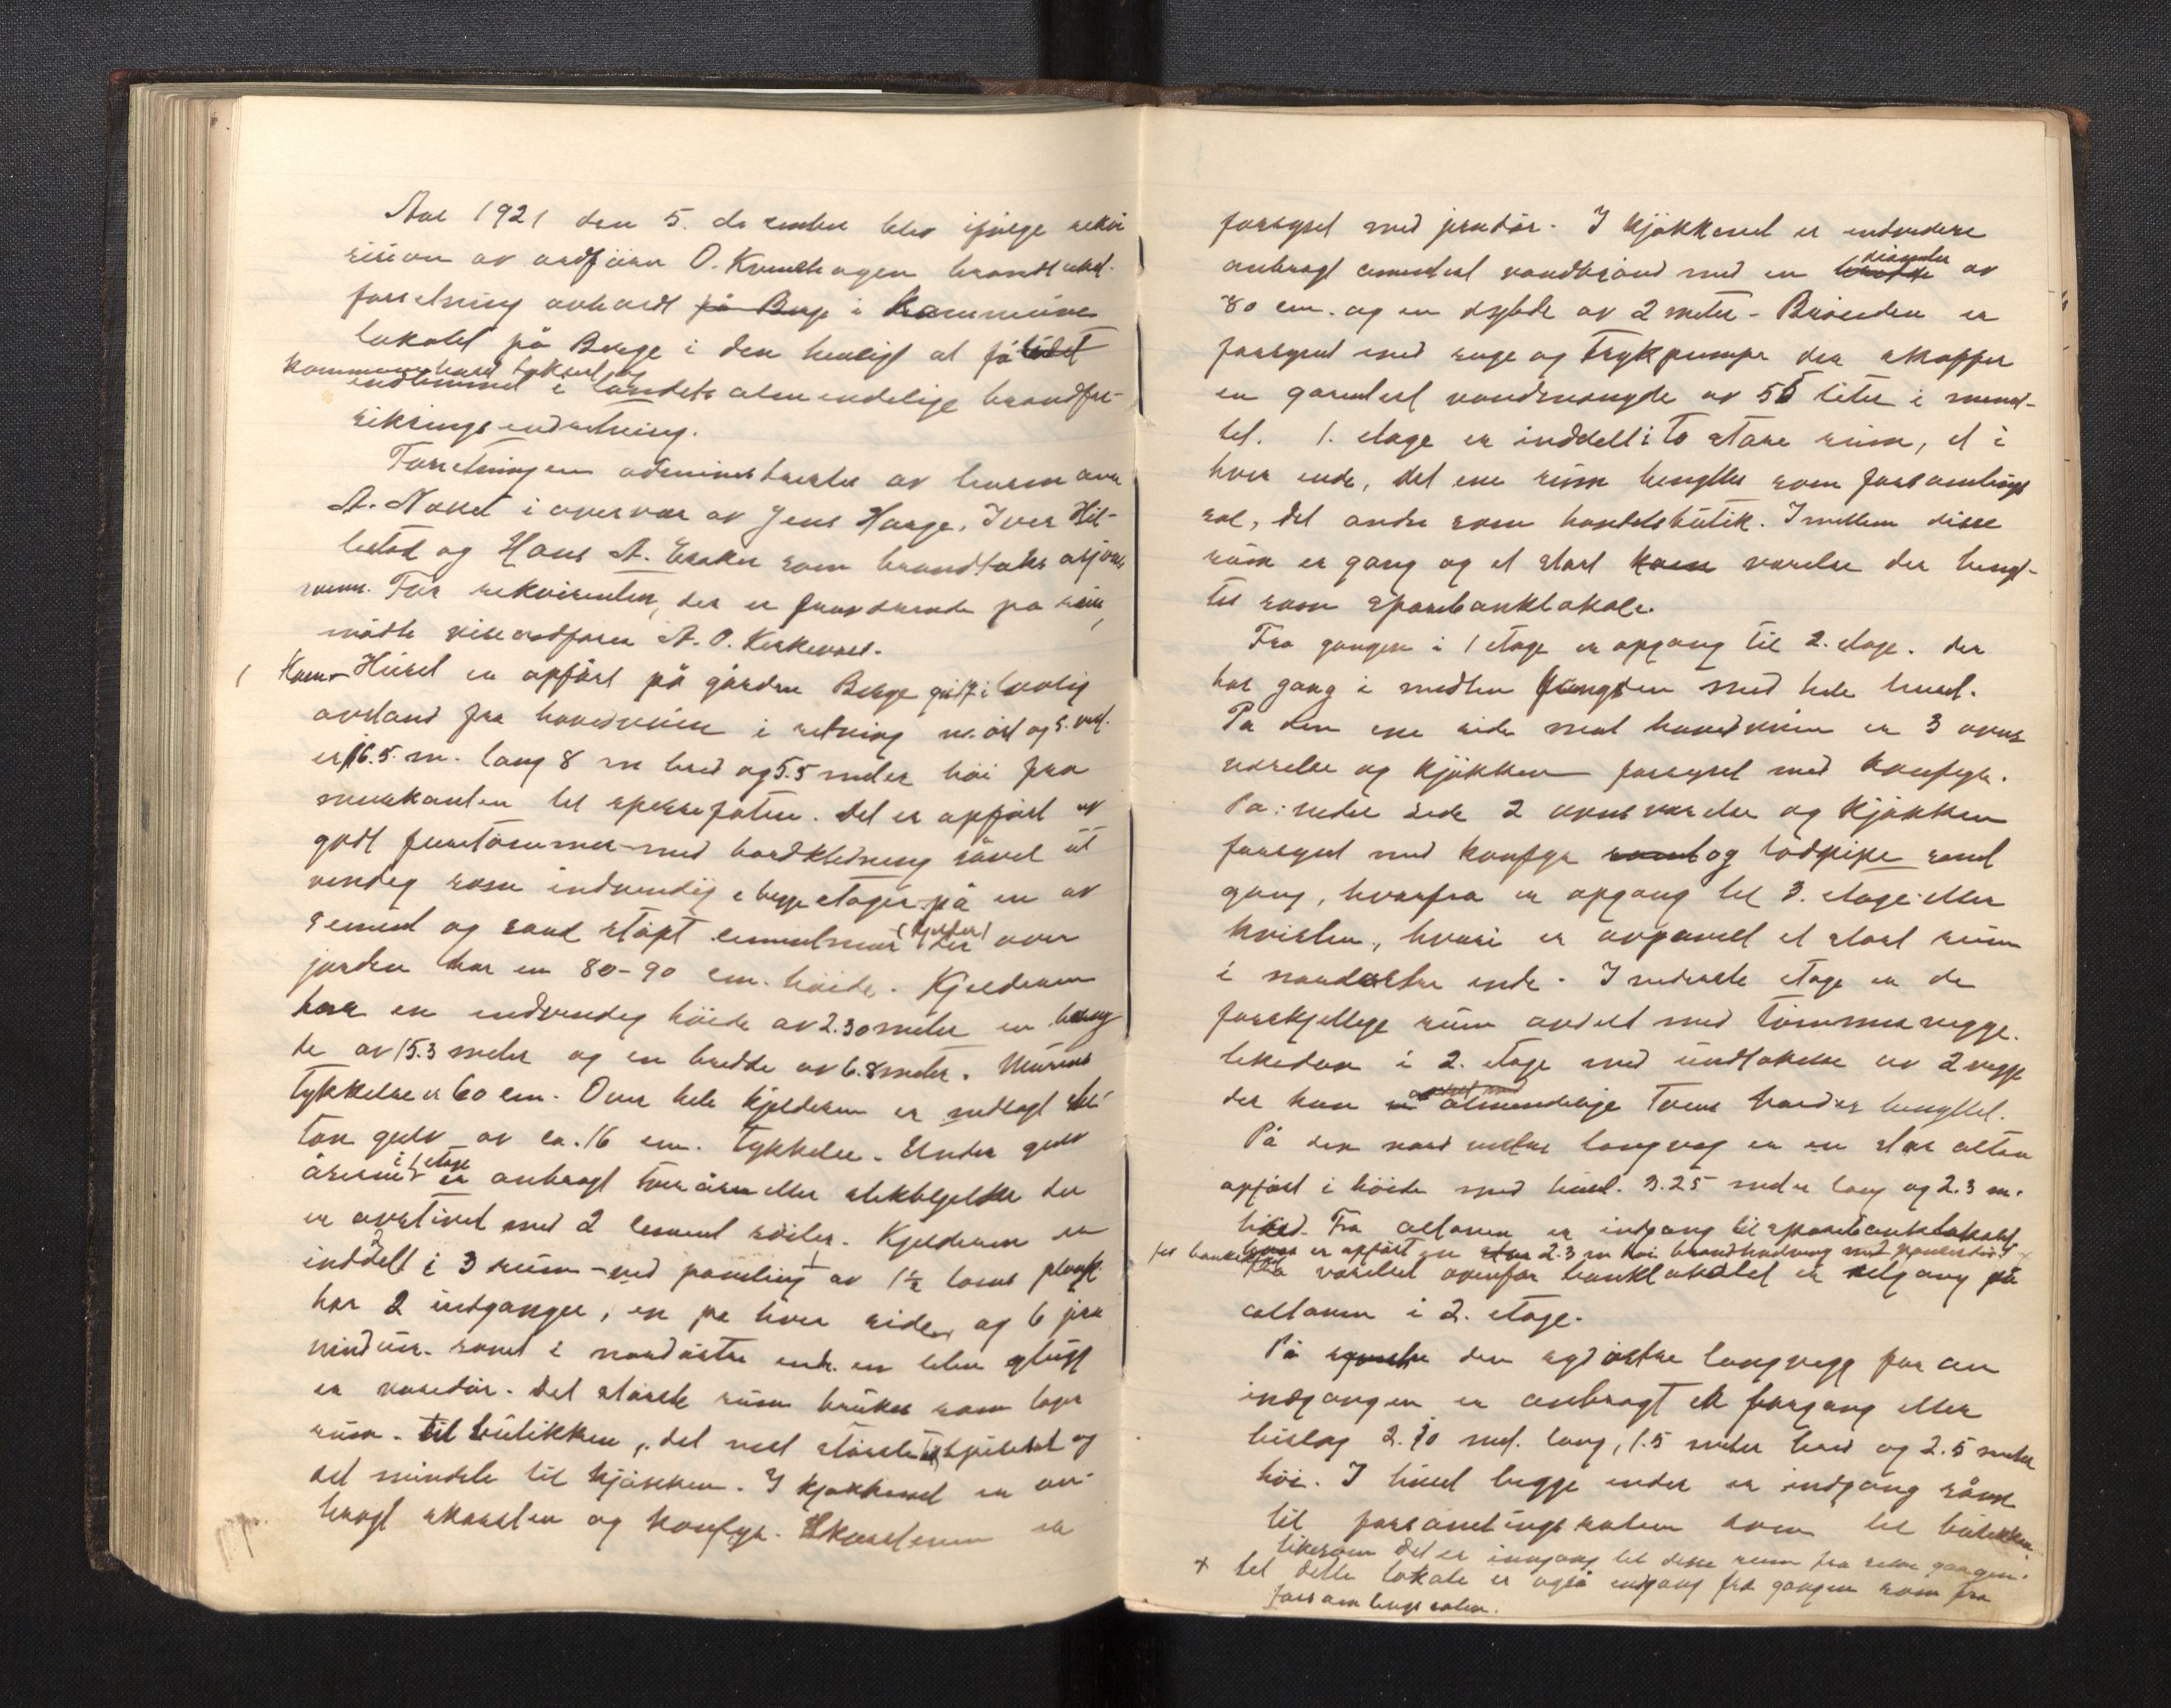 Aar 1921 den 5. desember blev ifølge rekvi
sision av ordfører O. Kvamhagen brandtakst-
forretning avholdt på Berge i kommune
lokalet på Berge i den hensigt at få
kommunehuset takseret og
indlemmet i landets almindelige brandfor-
sikringsindretning.
Forretningen administrertes av lensm
A. Navet i overvær av Jens Hauge, Iver Hil-
lestad og Hans A. som brandtaksasjons
menn. For rekvirenten, der er fraværende på reise,
mødte viseordfører A. O. Kirkevoll.
Kom. Huset er opført på gården Berge i
avstand fra hovedveien i retning n. øst og s. vest.
er 16.5 m. lang 8 m bred og 5.5 meter høi fra
murkanten til sperrefoten. Det er opført av
godt furutømmer med bordklædning såvel ut
vendig som indvendig i begge etager på en av
sement og sand støpt sementmur (kjelder) der over
jorden har en 80-90 cm. høide. Kjelderen
har en indvendig høide av 2.30 meter en læng
de av 15.3 meter og en bredde av 6.8 meter. Murens
tykkelse er 60 cm. Over hele kjelderen er indlagt be
ton gulv av ca. 16 cm. tykkelse. Under gulv
åserne i 1 etage er anbragt tverås eller stikbjelke der
er avstivet med 2 sement søiler. Kjelderen er
inddelt i 3 rum ved paneling av 1½ toms plank
har 2 indganger, en på hver side, og 6 jern
vinduer samt i nordøstre ende en liten glugg
er varedør. Det største rum brukes som lager
rum til butikken, det nest største til spisested og
det mindste til kjøkken. I kjøkkenet er an-
bragt skorsten og komfyr. Skorstenen er
forsynt med jerndør. I kjøkkenet er endvidere
anbragt cementert vandbrønd med en diameter av
80 cm. og en dybde av 2 meter. Brønden er
forsynt med suge og trykpumpe der skaffer
en garantert vandmengde av 55 liter i minut-
tet. 1. etage er inddelt i to store rum, et i
hver ende, det ene rum benyttes som forsamlings
sal, det andre som handelsbutik. Imellem disse
rum er gang og et stort værelse der benyt-
tes som sparebanklokale.
Fra gangen i 1 etage er opgang til 2. etage. der
har gang i midten længden med hele huset.
På den ene side mot hovedveien er 3 ovns
værelse og kjøkken forsynt med komfyr.
På: nedre side 2 ovnsværelse og kjøkken
forsynt med komfyr samt og lodpipe samt
gang, hvorfra er opgang til 3. etage eller
kvisten, hvori er avpanelt et stort rum
i nordøstre ende. I nederste etage er de
forskjellige rum avdelt med tømmervegge.
likedan i 2. etage med undtakelse av 2 vegge
der kun almindelige toms bord er benyttet.
På den nord vestre langveg er en stor altan
opført i høide med huset. 3.25 meter lang og 2.3 m.
bred. Fra altanen er indgang til sparebanklokalet.
til banken er opført en 2.3 m høi brandhvelving med panserdør.
Fra værelset ovenfor banklokalet er utgang på
altanen i 2. etage.
På søndre den sydøstre langvegg foran
indgangen er anbragt et forgang eller
bislag 2.10 met. lang, 1.5 meter bred og 2.5 meter
høi. I huset begge ender er indgang såvel
til forsamlingssalen som til butikken.
likesom det er inngang til disse rum fra selve gangen.
x til dette lokale er også indgang fra gangen som fra
forsamlingssalen.